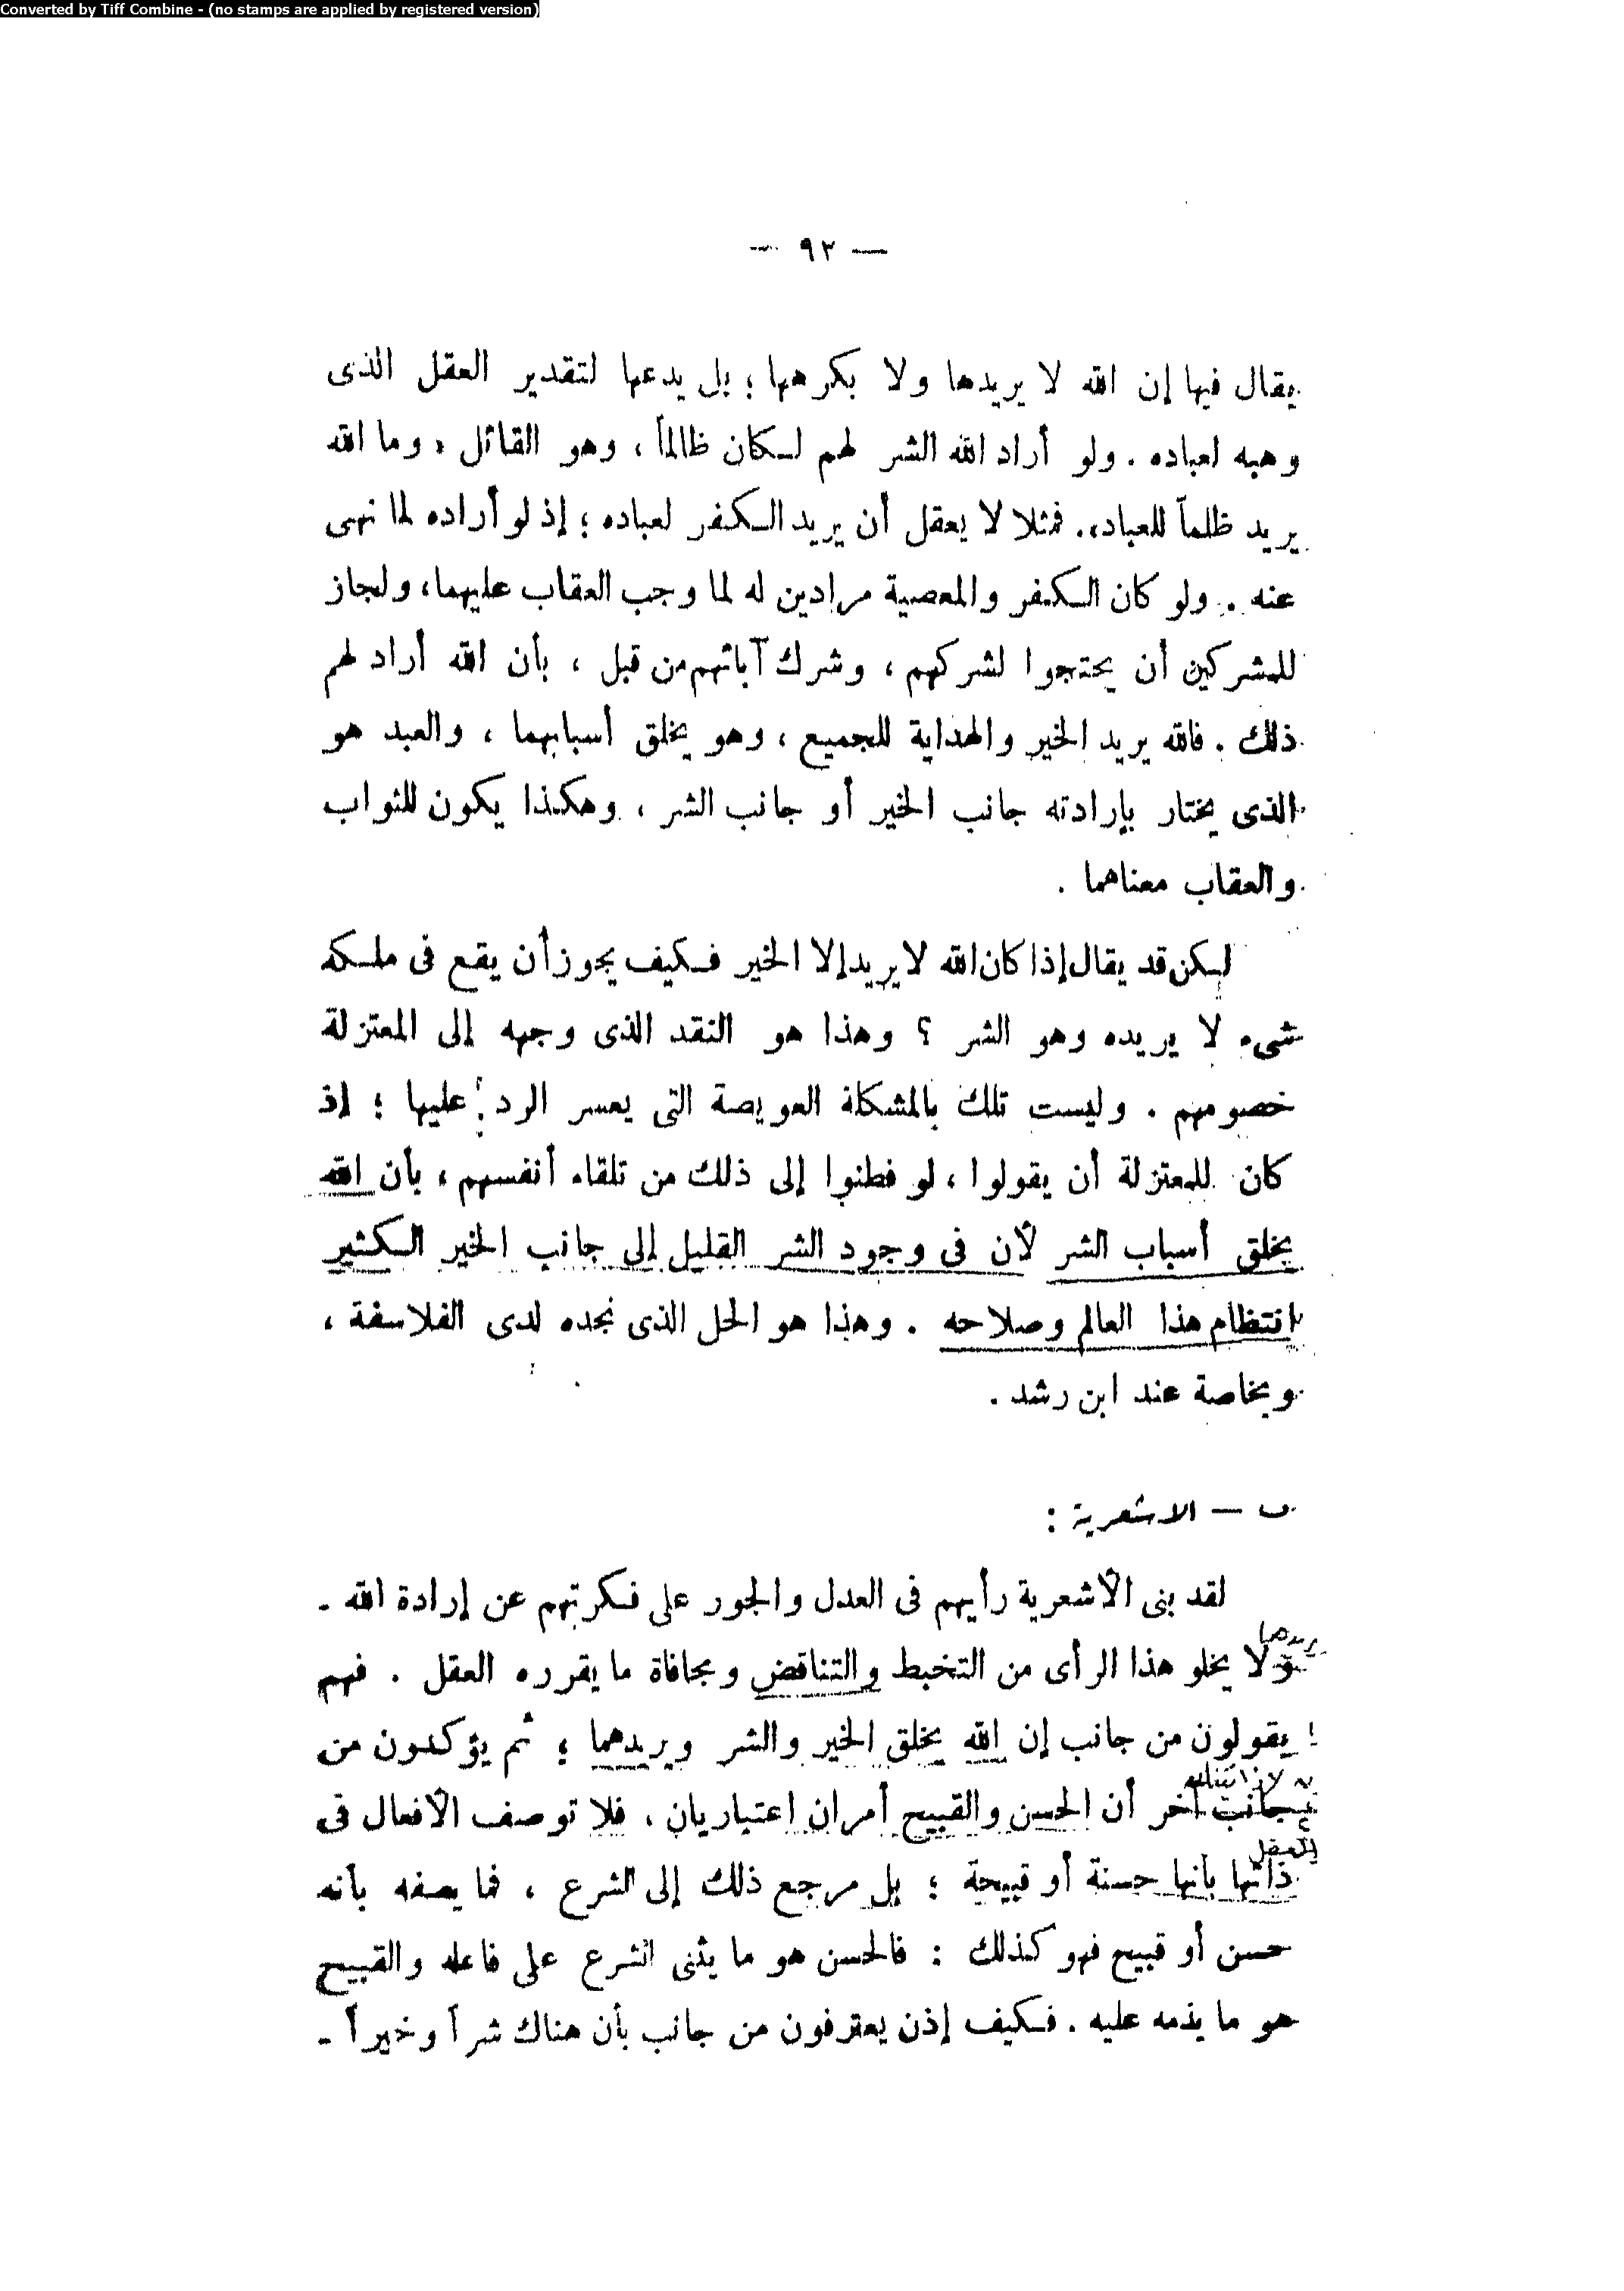 Converted by Tiff Combine - (no stamps are applied by registered version)
— ٩٢ —
يقال فيها إن الله لا يريدها ولا يكرهها؛ بل يدعها لتقدير العقل الذى
وهبه لعباده . ولو أراد الله الشر لهم لكان ظالماً ، وهو القائل « وما الله
يريد ظلماً للعباد». فمثلا لا يعقل أن يريد الكفر لعباده ؛ إذ لو أراده لما نهى
عنه . ولو كان الكفر والمعصية مرادين له لما وجب العقاب عليهما، ولجاز
للمشركين أن يحتجوا لشركهم ، وشرك آبائهم من قبل ، بأن الله أراد لهم
ذلك . فالله يريد الخير والهداية للجميع ، وهو يخلق أسبابهما ، والعبد هو
الذى يختار بإرادته جانب الخير أو جانب الشر ، وهكذا يكون للثواب
والعقاب معناهما .
لكن قد يقال إذا كان الله لا يريد إلا الخير فكيف يجوز أن يقع فى ملكه
شىء لا يريده وهو الشر ؟ وهذا هو النقد الذى وجهه إلى المعتزلة
خصومهم . وليست تلك بالمشكلة العويصة التى يعسر الرد عليها ؛ إذ
كان للمعتزلة أن يقولوا ، لو فطنوا إلى ذلك من تلقاء أنفسهم ، بأن الله
يخلق أسباب الشر لأن فى وجود الشر القليل إلى جانب الخير الكثير
انتظام هذا العالم وصلاحه . وهذا هو الحل الذى نجده لدى الفلاسفة ،
وبخاصة عند ابن رشد .
ب — الاشعرية :
لقد بنى الأشعرية رأيهم فى العدل والجور على فكرتهم عن إرادة الله .
يريدهما
ولا يخلو هذا الرأى من التخبط والتناقض ومجافاة ما يقرره العقل . فهم
يقولون من جانب إن الله يخلق الخير والشر ويريدهما ؛ ثم يؤكدون من
جانب آخر أن الحسن والقبيح أمران اعتباريان ، فلا توصف الأفعال فى
العقل
ذاتها بأنها حسنة أو قبيحة ؛ بل مرجع ذلك إلى الشرع ، فما يصفه بأنه
حسن أو قبيح فهو كذلك : فالحسن هو ما يثنى الشرع على فاعله والقبيح
هو ما يذمه عليه . فكيف إذن يعترفون من جانب بأن هناك شراً وخيراً -